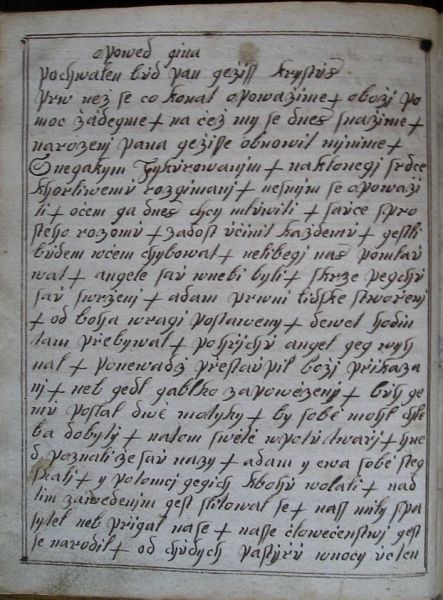 opowed gina
pochwalen bud pan gežiss krystus
prw než se co konat opowažime + o boži po
moc žadegme + na čež my se dnes snažime +
narozeni pana gežisse obnowil minime +
S negakym + naklonegj srdce
k horliwemu rozgimanj + nesmim se opowaži
ti + očem ga dnes chcy mluwiti + sauce spro
steho rozomu + zadost učinit každemu + gestli
budem wčem chybowat + nelibegj nas pomlau
wat + angele sau wnebi byli + skrze pegchu
sau swrženj + adam prwni lidske stwořenj
+ od boha wragi postaweny + dewet hodin
tam přebywal + po hřjchu angel geg wyh
nal + ponewadž přestaupil boži přikaza
nj + neb gedl gablko zapowěženj + buh ge
mu poslal dwě motyky + by sobě mohl chle
ba dobyti + natom swětě wpolu twařj + hne
d poznali že sau nazy + adam y ewa sobě steg
skali + y potomcj gegich k bohu wolali + nad
tim zawedenim gest slitowal se + nass mily spa
sytel neb přigal na se + nasse člowečenstwj gest
se narodil + od chudych pastýřu wnocy včten